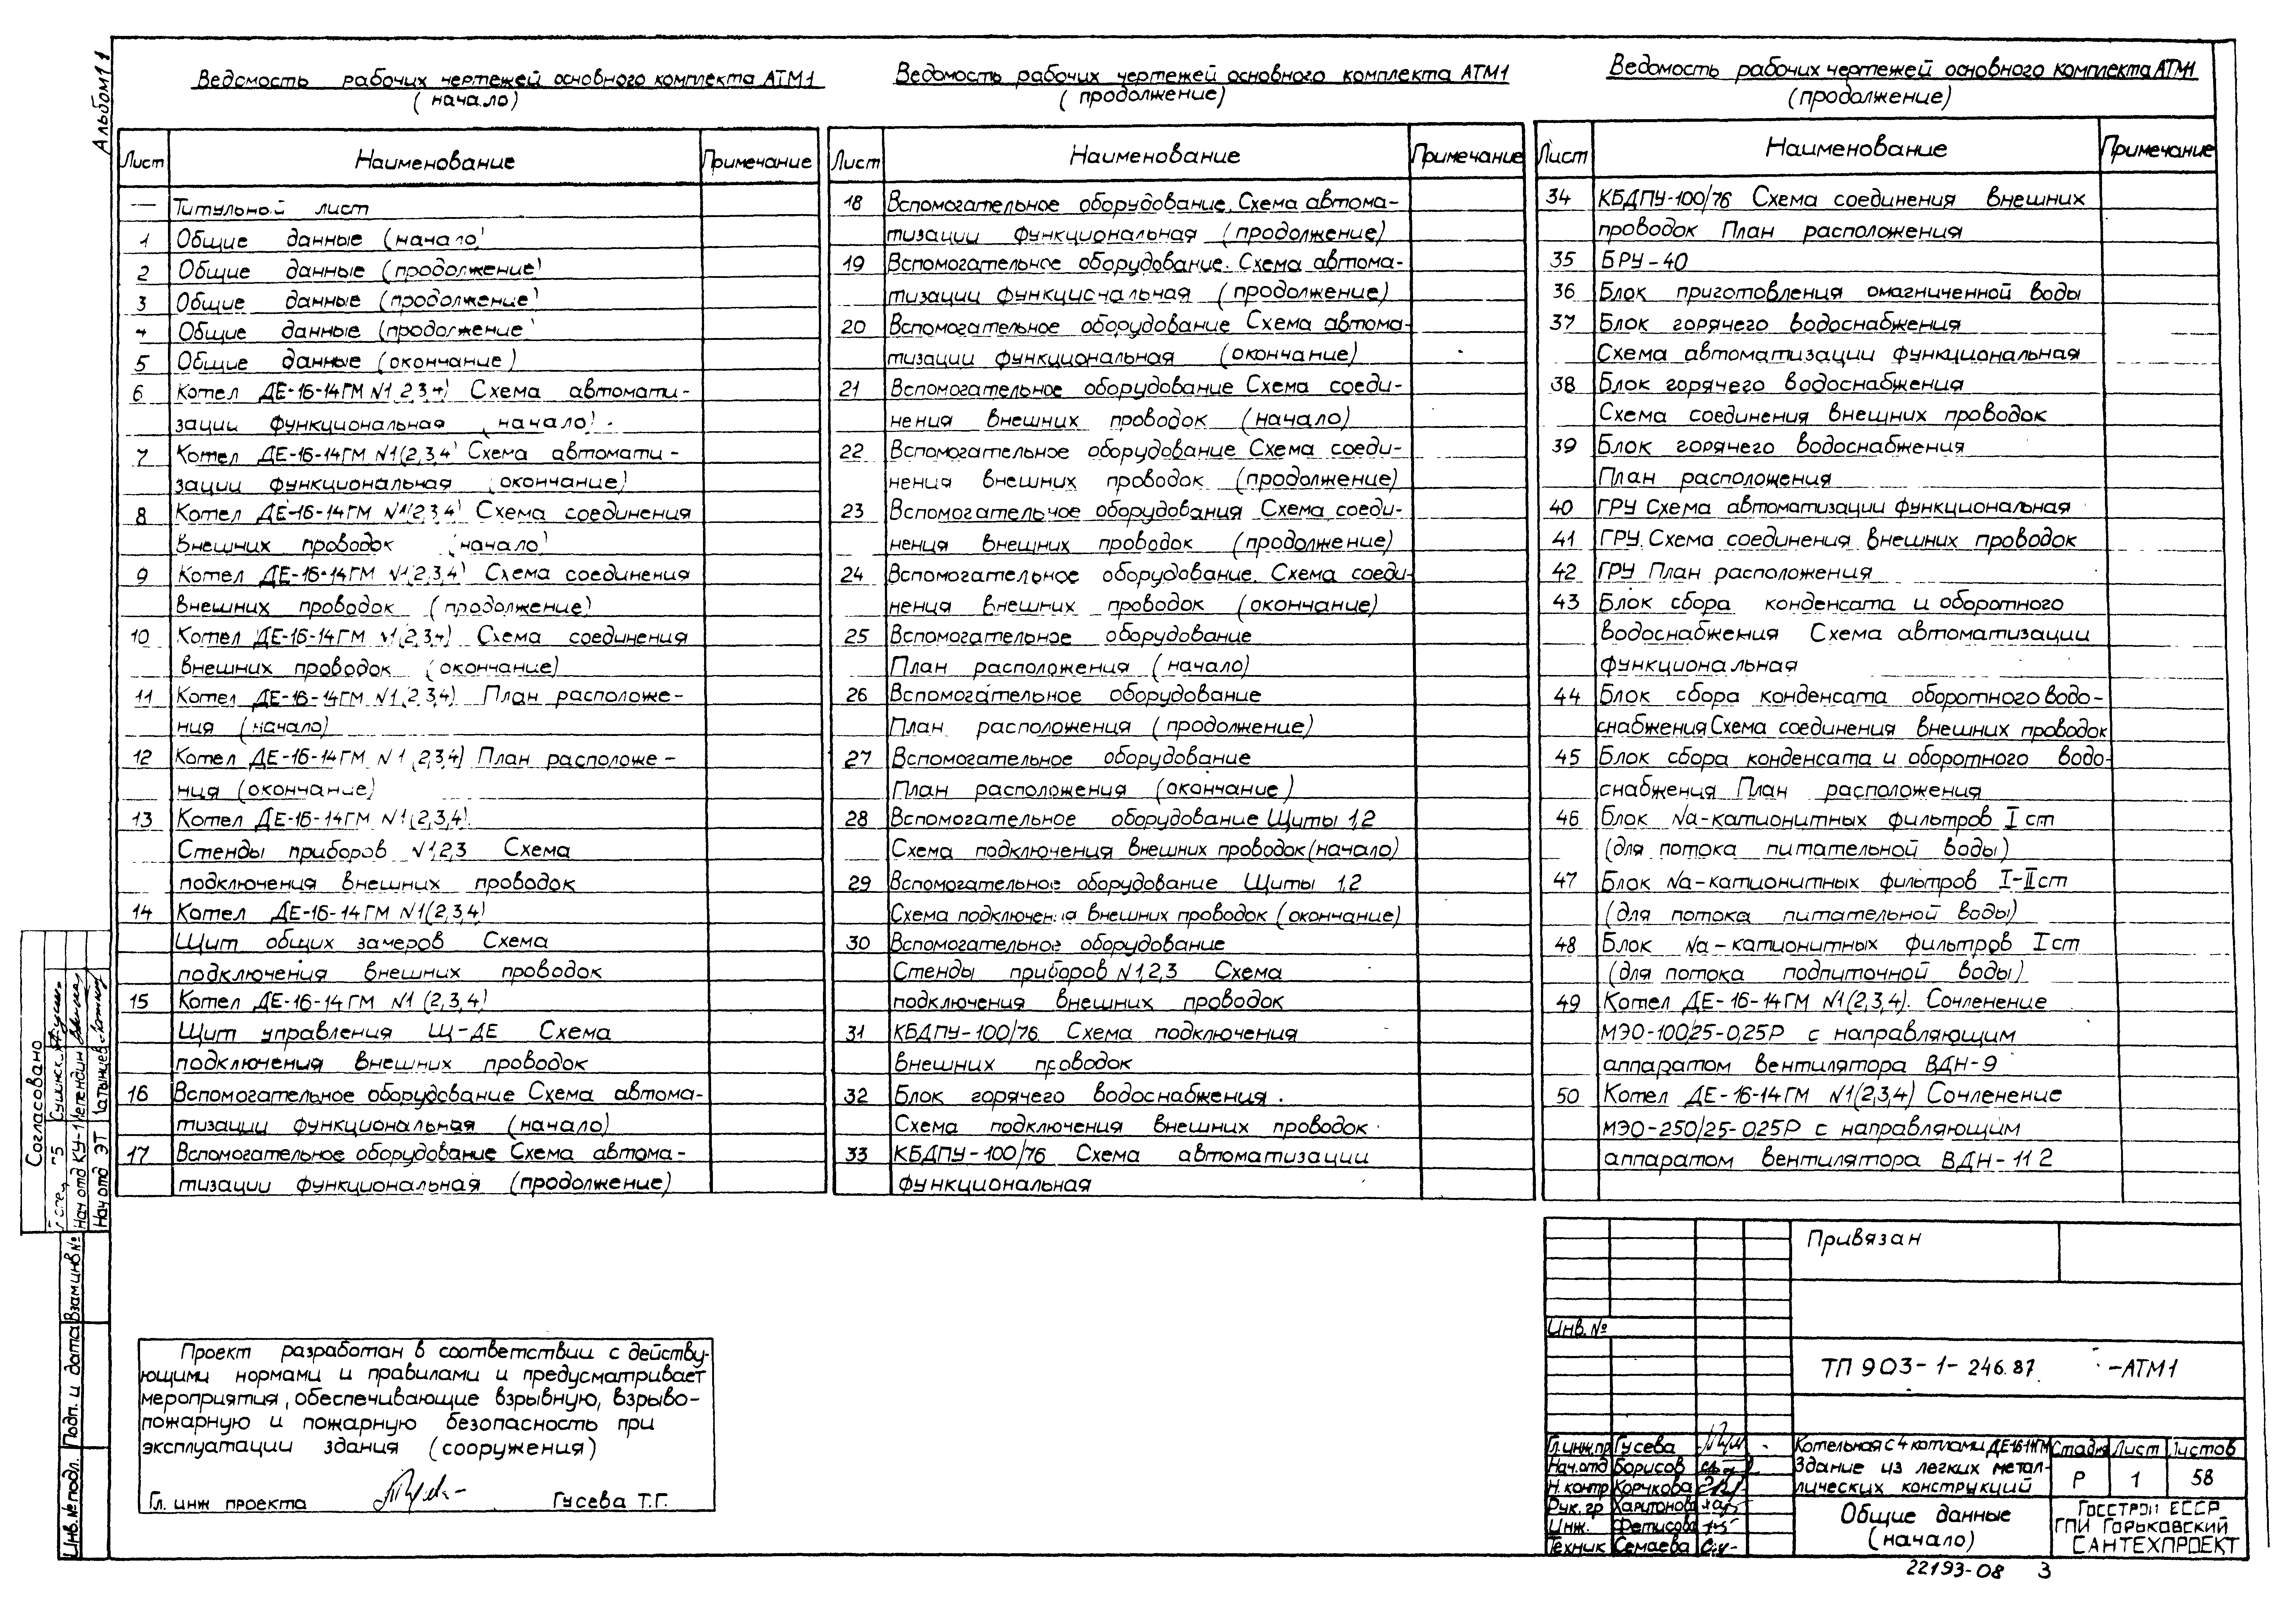 Альбом 11
Ведомость рабочих чертежей основного комплекта АТМ1
(начало)
Лист Наименование Примечание
— Титульной лист
1 Общие данные (начало)
2 Общие данные (продолжение)
3 Общие данные (продолжение)
4 Общие данные (продолжение)
5 Общие данные (окончание)
6 Котел ДЕ-16-14ГМ N1(2,3,4) Схема автомати-
зации функциональная (начало).
7 Котел ДЕ-16-14ГМ N1(2,3,4) Схема автомати-
зации функциональная (окончание)
8 Котел ДЕ-16-14ГМ N1(2,3,4) Схема соединения
внешних проводок (начало)
9 Котел ДЕ-16-14ГМ N1(2,3,4) Схема соединения
внешних проводок (продолжение)
10 Котел ДЕ-16-14ГМ N1(2,3,4) Схема соединения
внешних проводок (окончание)
11 Котел ДЕ-16-14ГМ N1(2,3,4) План расположе-
ния (начало)
12 Котел ДЕ-16-14ГМ N1(2,3,4) План расположе-
ния (окончание)
13 Котел ДЕ-16-14ГМ N1(2,3,4)
Стенды приборов N1,2,3 Схема
подключения внешних проводок
14 Котел ДЕ-16-14ГМ N1(2,3,4)
Щит общих замеров Схема
подключения внешних проводок
15 Котел ДЕ-16-14ГМ N1 (2,3,4)
Щит управления Щ-ДЕ Схема
подключения внешних проводок
16 Вспомогательное оборудование Схема автома-
тизации функциональная (начало)
17 Вспомогательное оборудование Схема автома-
тизации функциональная (продолжение)
Ведомость рабочих чертежей основного комплекта АТМ1
(продолжение)
Лист Наименование Примечание
18 Вспомогательное оборудование. Схема автома-
тизации функциональная (продолжение)
19 Вспомогательное оборудование. Схема автома-
тизации функциональная (продолжение)
20 Вспомогательное оборудование Схема автома-
тизации функциональная (окончание)
21 Вспомогательное оборудование Схема соеди-
нения внешних проводок (начало)
22 Вспомогательное оборудование Схема соеди-
нения внешних проводок (продолжение)
23 Вспомогательное оборудования Схема соеди-
нения внешних проводок (продолжение)
24 Вспомогательное оборудование. Схема соеди-
нения внешних проводок (окончание)
25 Вспомогательное оборудование
План расположения (начало)
26 Вспомогательное оборудование
План расположения (продолжение)
27 Вспомогательное оборудование
План расположения (окончание)
28 Вспомогательное оборудование Щиты 1,2
Схема подключения внешних проводок (начало)
29 Вспомогательное оборудование Щиты 1,2
Схема подключения внешних проводок (окончание)
30 Вспомогательное оборудование
Стенды приборов N1,2,3 Схема
подключения внешних проводок
31 КБДПУ-100/76. Схема подключения
внешних проводок
32 Блок горячего водоснабжения.
Схема подключения внешних проводок
33 КБДПУ-100/76 Схема автоматизации
функциональная
Ведомость рабочих чертежей основного комплекта АТМ1
(продолжение)
Лист Наименование Примечание
34 КБДПУ-100/76 Схема соединения внешних
проводок План расположения
35 БРУ-40
36 Блок приготовления омагниченной воды
37 Блок горячего водоснабжения
Схема автоматизации функциональная
38 Блок горячего водоснабжения
Схема соединения внешних проводок
39 Блок горячего водоснабжения
План расположения
40 ГРУ Схема автоматизации функциональная
41 ГРУ. Схема соединения внешних проводок
42 ГРУ План расположения
43 Блок сбора конденсата и оборотного
водоснабжения Схема автоматизации
функциональная
44 Блок сбора конденсата оборотного водо-
снабжения Схема соединения внешних проводок
45 Блок сбора конденсата и оборотного водо-
снабжения План расположения
46 Блок Na-катионитных фильтров I ст
(для потока питательной воды)
47 Блок Na-катионитных фильтров I-II ст
(для потока питательной воды)
48 Блок Na-катионитных фильтров I ст
(для потока подпиточной воды)
49 Котел ДЕ-16-14ГМ N1(2,3,4). Сочленение
МЭО-100/25-0,25Р с направляющим
аппаратом вентилятора ВДН-9
50 Котел ДЕ-16-14ГМ N1(2,3,4) Сочленение
МЭО-250/25-0,25Р с направляющим
аппаратом вентилятора ВДН-11 2
Проект разработан в соответствии с действу-
ющими нормами и правилами и предусматривает
мероприятия, обеспечивающие взрывную, взрыво-
пожарную и пожарную безопасность при
эксплуатации здания (сооружения)
Гл. инж проекта Гусева Т.Г.
Согласовано
Нач отд КУ-1
Нач отд ЭТ
Взам инв №
Подп. и дата
Инв.№ подл.
Привязан
Инв. №
ТП 903-1-246.87 -АТМ1
Гл. инж. пр Гусева
Нач. отд Борисов
Н. контр Корчкова
Рук. гр Харитонова
Инж. Фетисова
Техник Семаева
Котельная с 4 котлами ДЕ16-14ГМ
Здание из легких метал-
лических конструкций
Стадия Лист Листов
Р 1 58
Общие данные
(начало)
ГОССТРОЙ СССР
ГПИ ГОРЬКОВСКИЙ
САНТЕХПРОЕКТ
22193-08 3